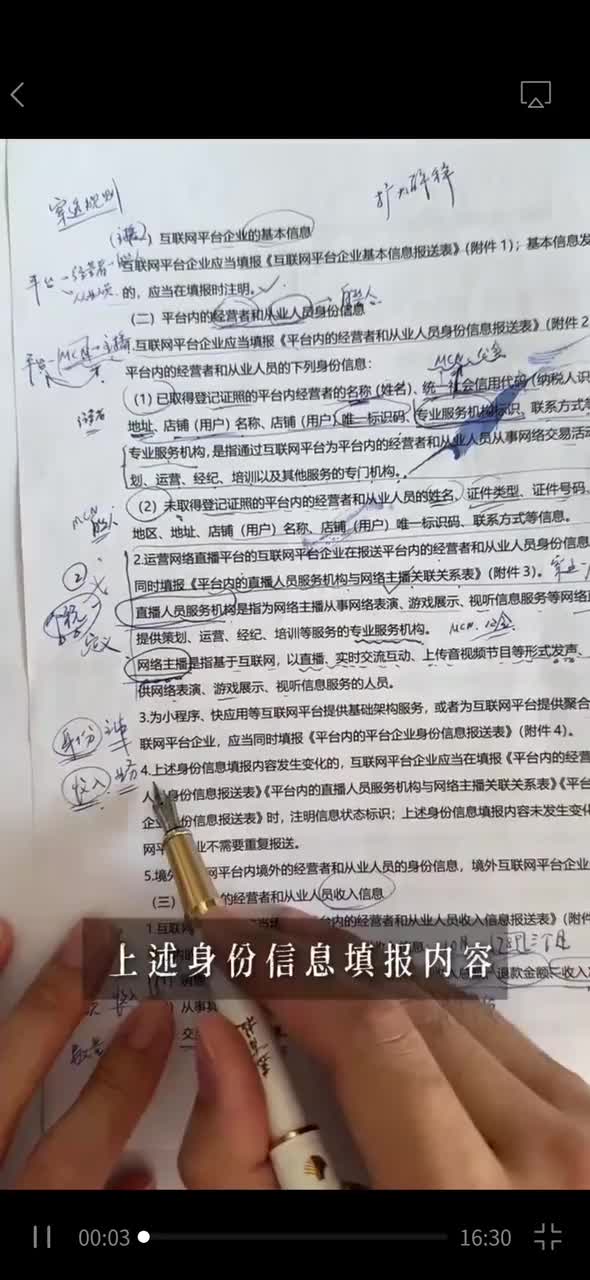 穿透规则
扩大解释
(一) 互联网平台企业的基本信息
互联网平台企业应当填报《互联网平台企业基本信息报送表》(附件 1)；基本信息发
的，应当在填报时注明。
(二) 平台内的经营者和从业人员身份信息
.互联网平台企业应当填报《平台内的经营者和从业人员身份信息报送表》(附件 2
平台内的经营者和从业人员的下列身份信息：
MCN 公会
(1) 已取得登记证照的平台内经营者的名称 (姓名)、统一社会信用代码 (纳税人识
地址、店铺 (用户) 名称、店铺 (用户) 唯一标识码、专业服务机构标识、联系方式等
专业服务机构，是指通过互联网平台为平台内的经营者和从业人员从事网络交易活动
划、运营、经纪、培训以及其他服务的专门机构。
MCN
(2) 未取得登记证照的平台内的经营者和从业人员的姓名、证件类型、证件号码、
地区、地址、店铺 (用户) 名称、店铺 (用户) 唯一标识码、联系方式等信息。
2.运营网络直播平台的互联网平台企业在报送平台内的经营者和从业人员身份信息
②
同时填报《平台内的直播人员服务机构与网络主播关联关系表》(附件 3)。
直播人员服务机构是指为网络主播从事网络表演、游戏展示、视听信息服务等网络直
定义
提供策划、运营、经纪、培训等服务的专业服务机构。
MCN、公会
网络主播是指基于互联网，以直播、实时交流互动、上传音视频节目等形式发声、
供网络表演、游戏展示、视听信息服务的人员。
3.为小程序、快应用等互联网平台提供基础架构服务，或者为互联网平台提供聚合
身份
联网平台企业，应当同时填报《平台内的平台企业身份信息报送表》(附件 4)。
收入
4.上述身份信息填报内容发生变化的，互联网平台企业应当在填报《平台内的经营
人员身份信息报送表》《平台内的直播人员服务机构与网络主播关联关系表》《平台
企业身份信息报送表》时，注明信息状态标识；上述身份信息填报内容未发生变化
网平 业不需要重复报送。
5.境外 网平台内境外的经营者和从业人员的身份信息，境外互联网平台企业
(三) 的经营者和从业人员收入信息
1.互联网 内的经营者和从业人员收入信息报送表》(附件
上述身份信息填报内容
退款金额、收入
从事其
交
00:03
16:30